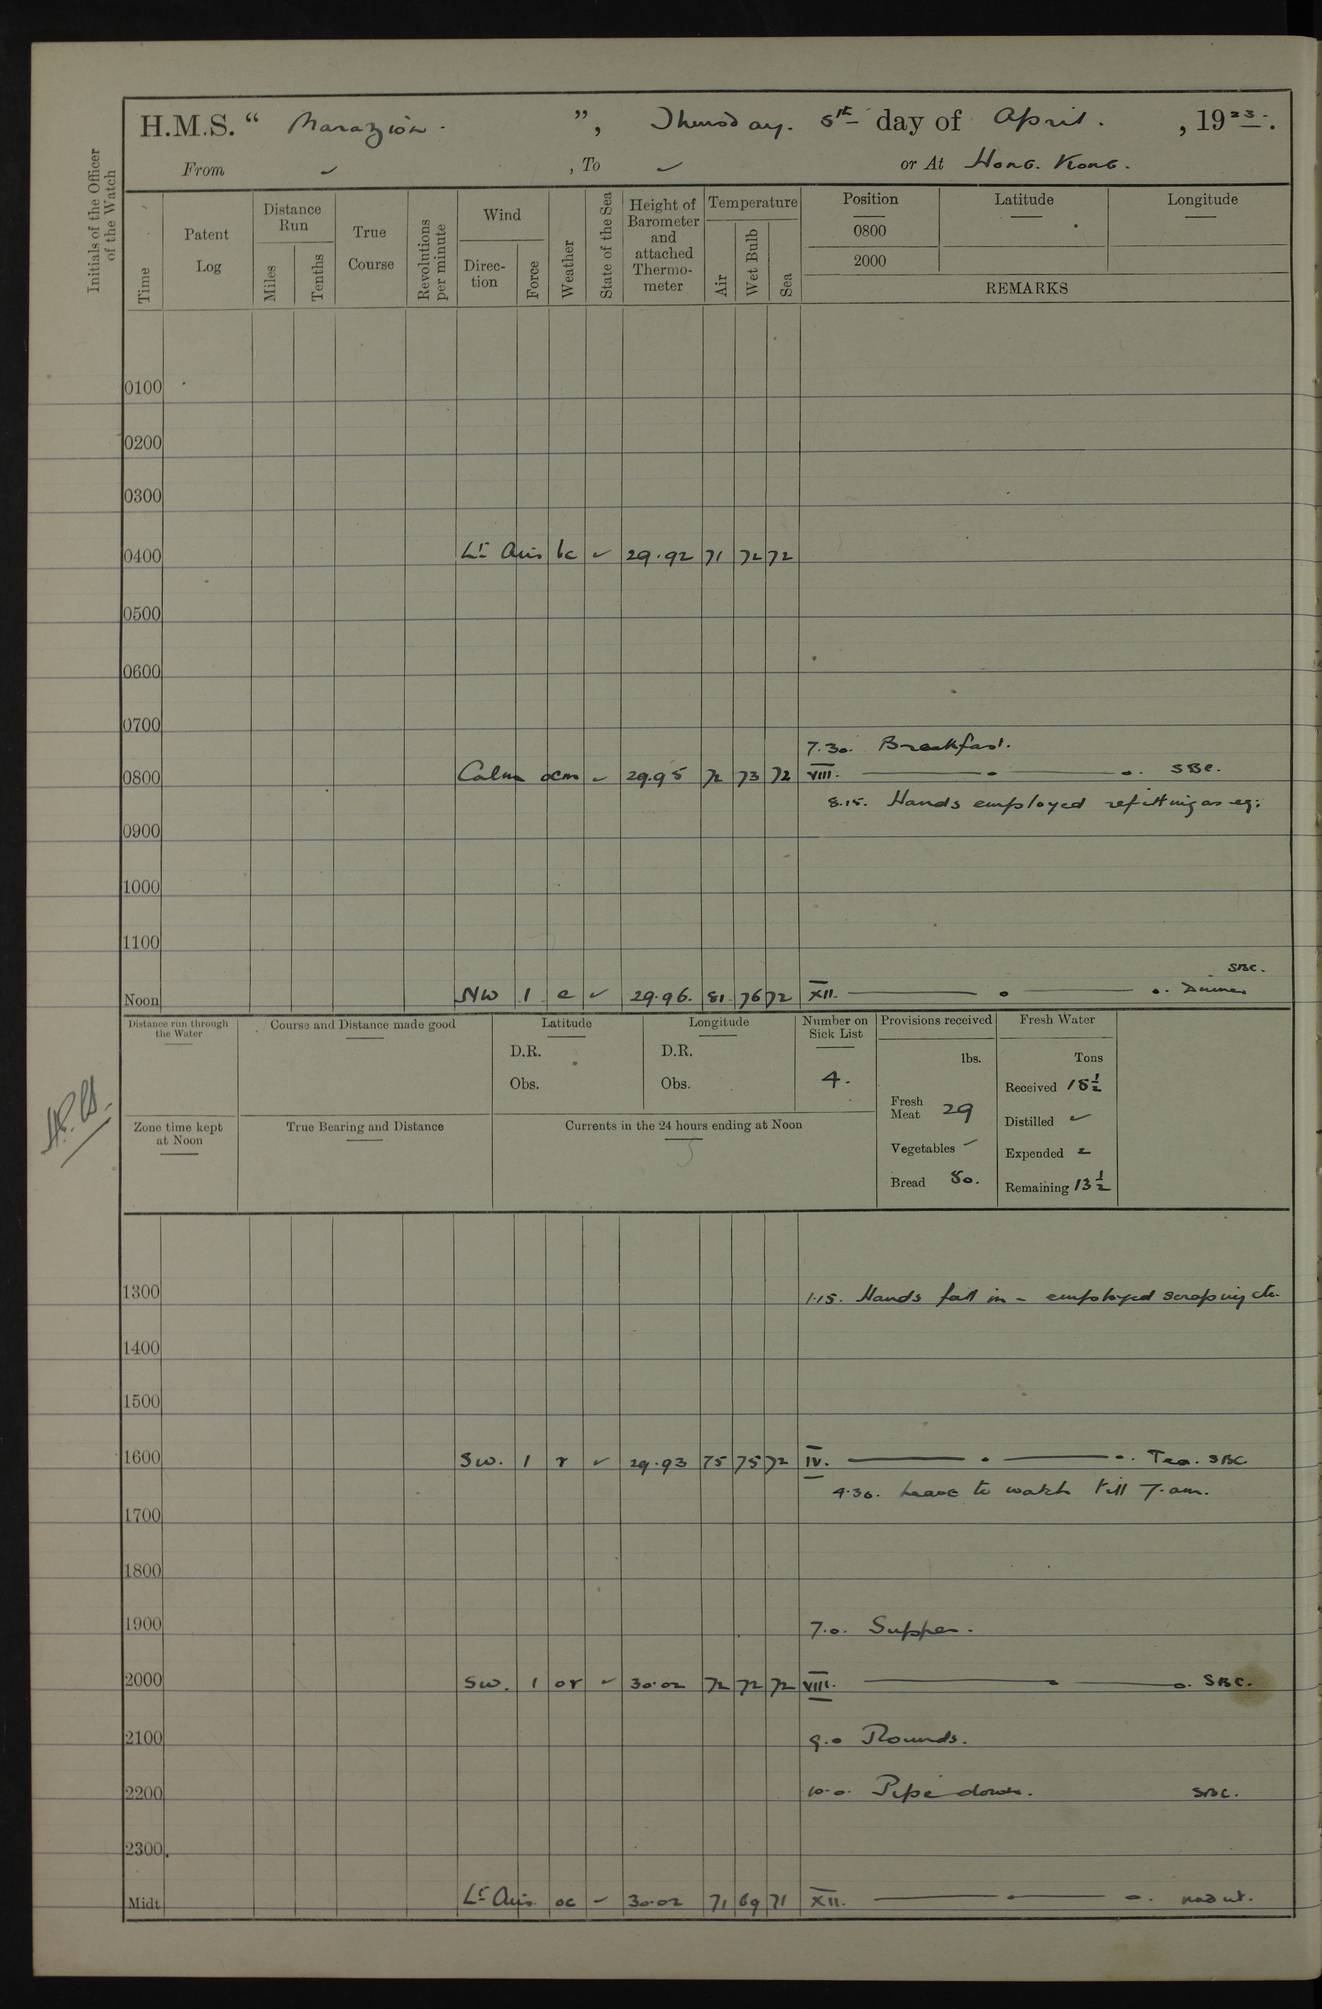 H.M.S. “ Marazion. ”, Thursday. 5th day of April. , 1923.
From ✓ , To ✓ or At Hong. Kong.
Initials of the Officer of the Watch
Time
Patent Log
Distance Run
Miles
Tenths
True Course
Revolutions per minute
Wind
Direc-tion
Force
Weather
State of the Sea
Height of Barometer and attached Thermo-meter
Temperature
Air
Wet Bulb
Sea
Position Latitude Longitude
0800
2000
REMARKS
0100
0200
0300
0400 Lt Airs bc ✓ 29.92 71 72 72
0500
0600
0700
7.30. Breakfast.
0800 Calm ocm ✓ 29.95 72 73 72 VIII. SBC.
8.15. Hands employed refitting as
0900
1000
1100
SBC.
Noon NW 1 c ✓ 29.96. 81 76 72 XII. Dinner
Distance run through the Water
Course and Distance made good
Latitude
D.R.
Obs.
Longitude
D.R.
Obs.
Number on Sick List
4.
Provisions received
lbs.
Fresh Meat 29
Vegetables ✓
Bread 80.
Fresh Water
Tons
Received 15½
Distilled ✓
Expended 2
Remaining 13½
Zone time kept at Noon
True Bearing and Distance
Currents in the 24 hours ending at Noon
1300 1.15. Hands fall in - employed scraping etc.
1400
1500
1600 SW. 1 r ✓ 29.93 75 75 72 IV. Tea. SBC
4.30. Leave to watch till 7.am.
1700
1800
1900 7.0. Supper.
2000 SW. 1 or ✓ 30.02 72 72 72 VIII. SBC.
2100 9.0 Rounds.
2200 10.0. Pipe down. SBC.
2300
Midt Lt Airs. oc ✓ 30.02 71 69 71 XII.